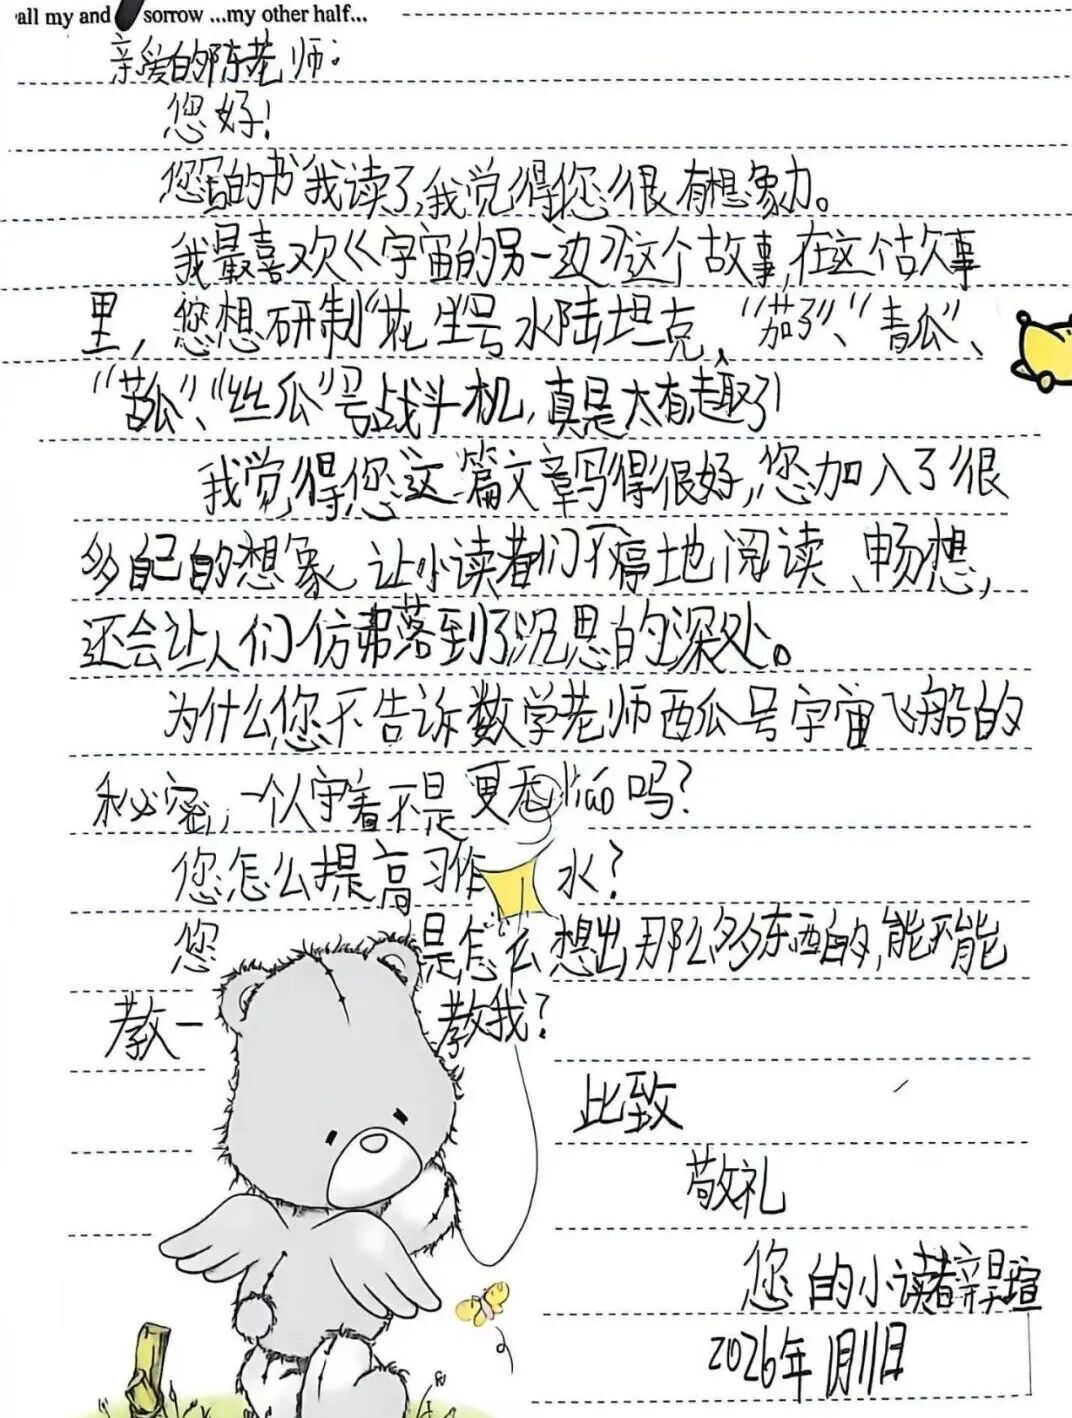 all my and sorrow ...my other half...
亲爱的陈老师：
您好！
您写的书我读了,我觉得您很有想象力。
我最喜欢《宇宙的另一边》这个故事,在这个故事
里，您想研制“花生”号水陆坦克、“茄子”、“青瓜”、
“苦瓜”、“丝瓜”号战斗机,真是太有趣了！
我觉得您这篇文章写得很好,您加入了很
多自己的想象,让小读者们不停地阅读、畅想,
还会让人们仿弗落到了沉思的深处。
为什么您不告诉数学老师西瓜号宇宙飞船的
秘密,一个人守着不是更无liáo吗？
您怎么提高习作水？
您是怎么想出那么多东西的,能不能
教一教我？
比致
敬礼
您的小读者
2026年1月11日